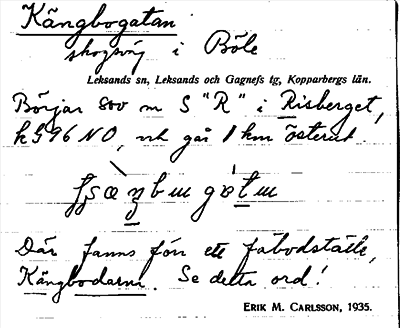 Kängbogatan
skogsväg i Böle
Leksands sn, Leksands och Gagnefs tg, Kopparbergs län.
Börjar 800 m S "R" i Risberget,
k 596 NO, och går 1 km österut.
Där fanns förr ett fäbodställe,
Kängbodarna. Se detta ord!
ERIK M. CARLSSON, 1935.